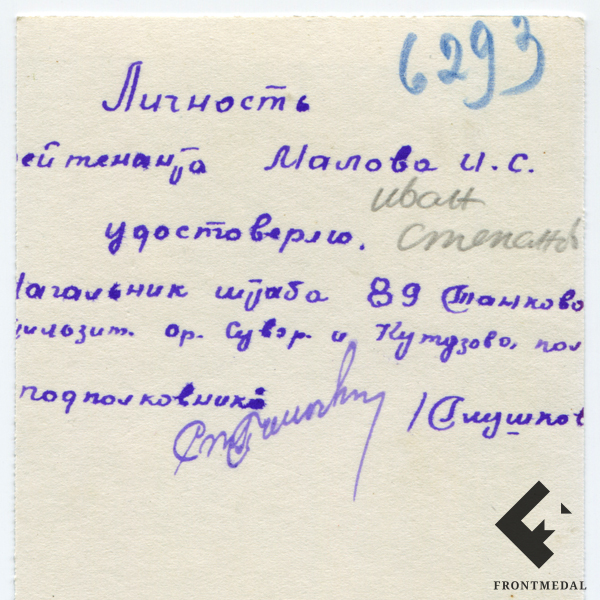 6293
Личность
ейтенанта Малова И.С.
иван
удостоверяю. степанов
Начальник штаба 89 Танково
ор. Сувор. и Кутузова, пол
подполковник
/Глушков
FRONTMEDAL